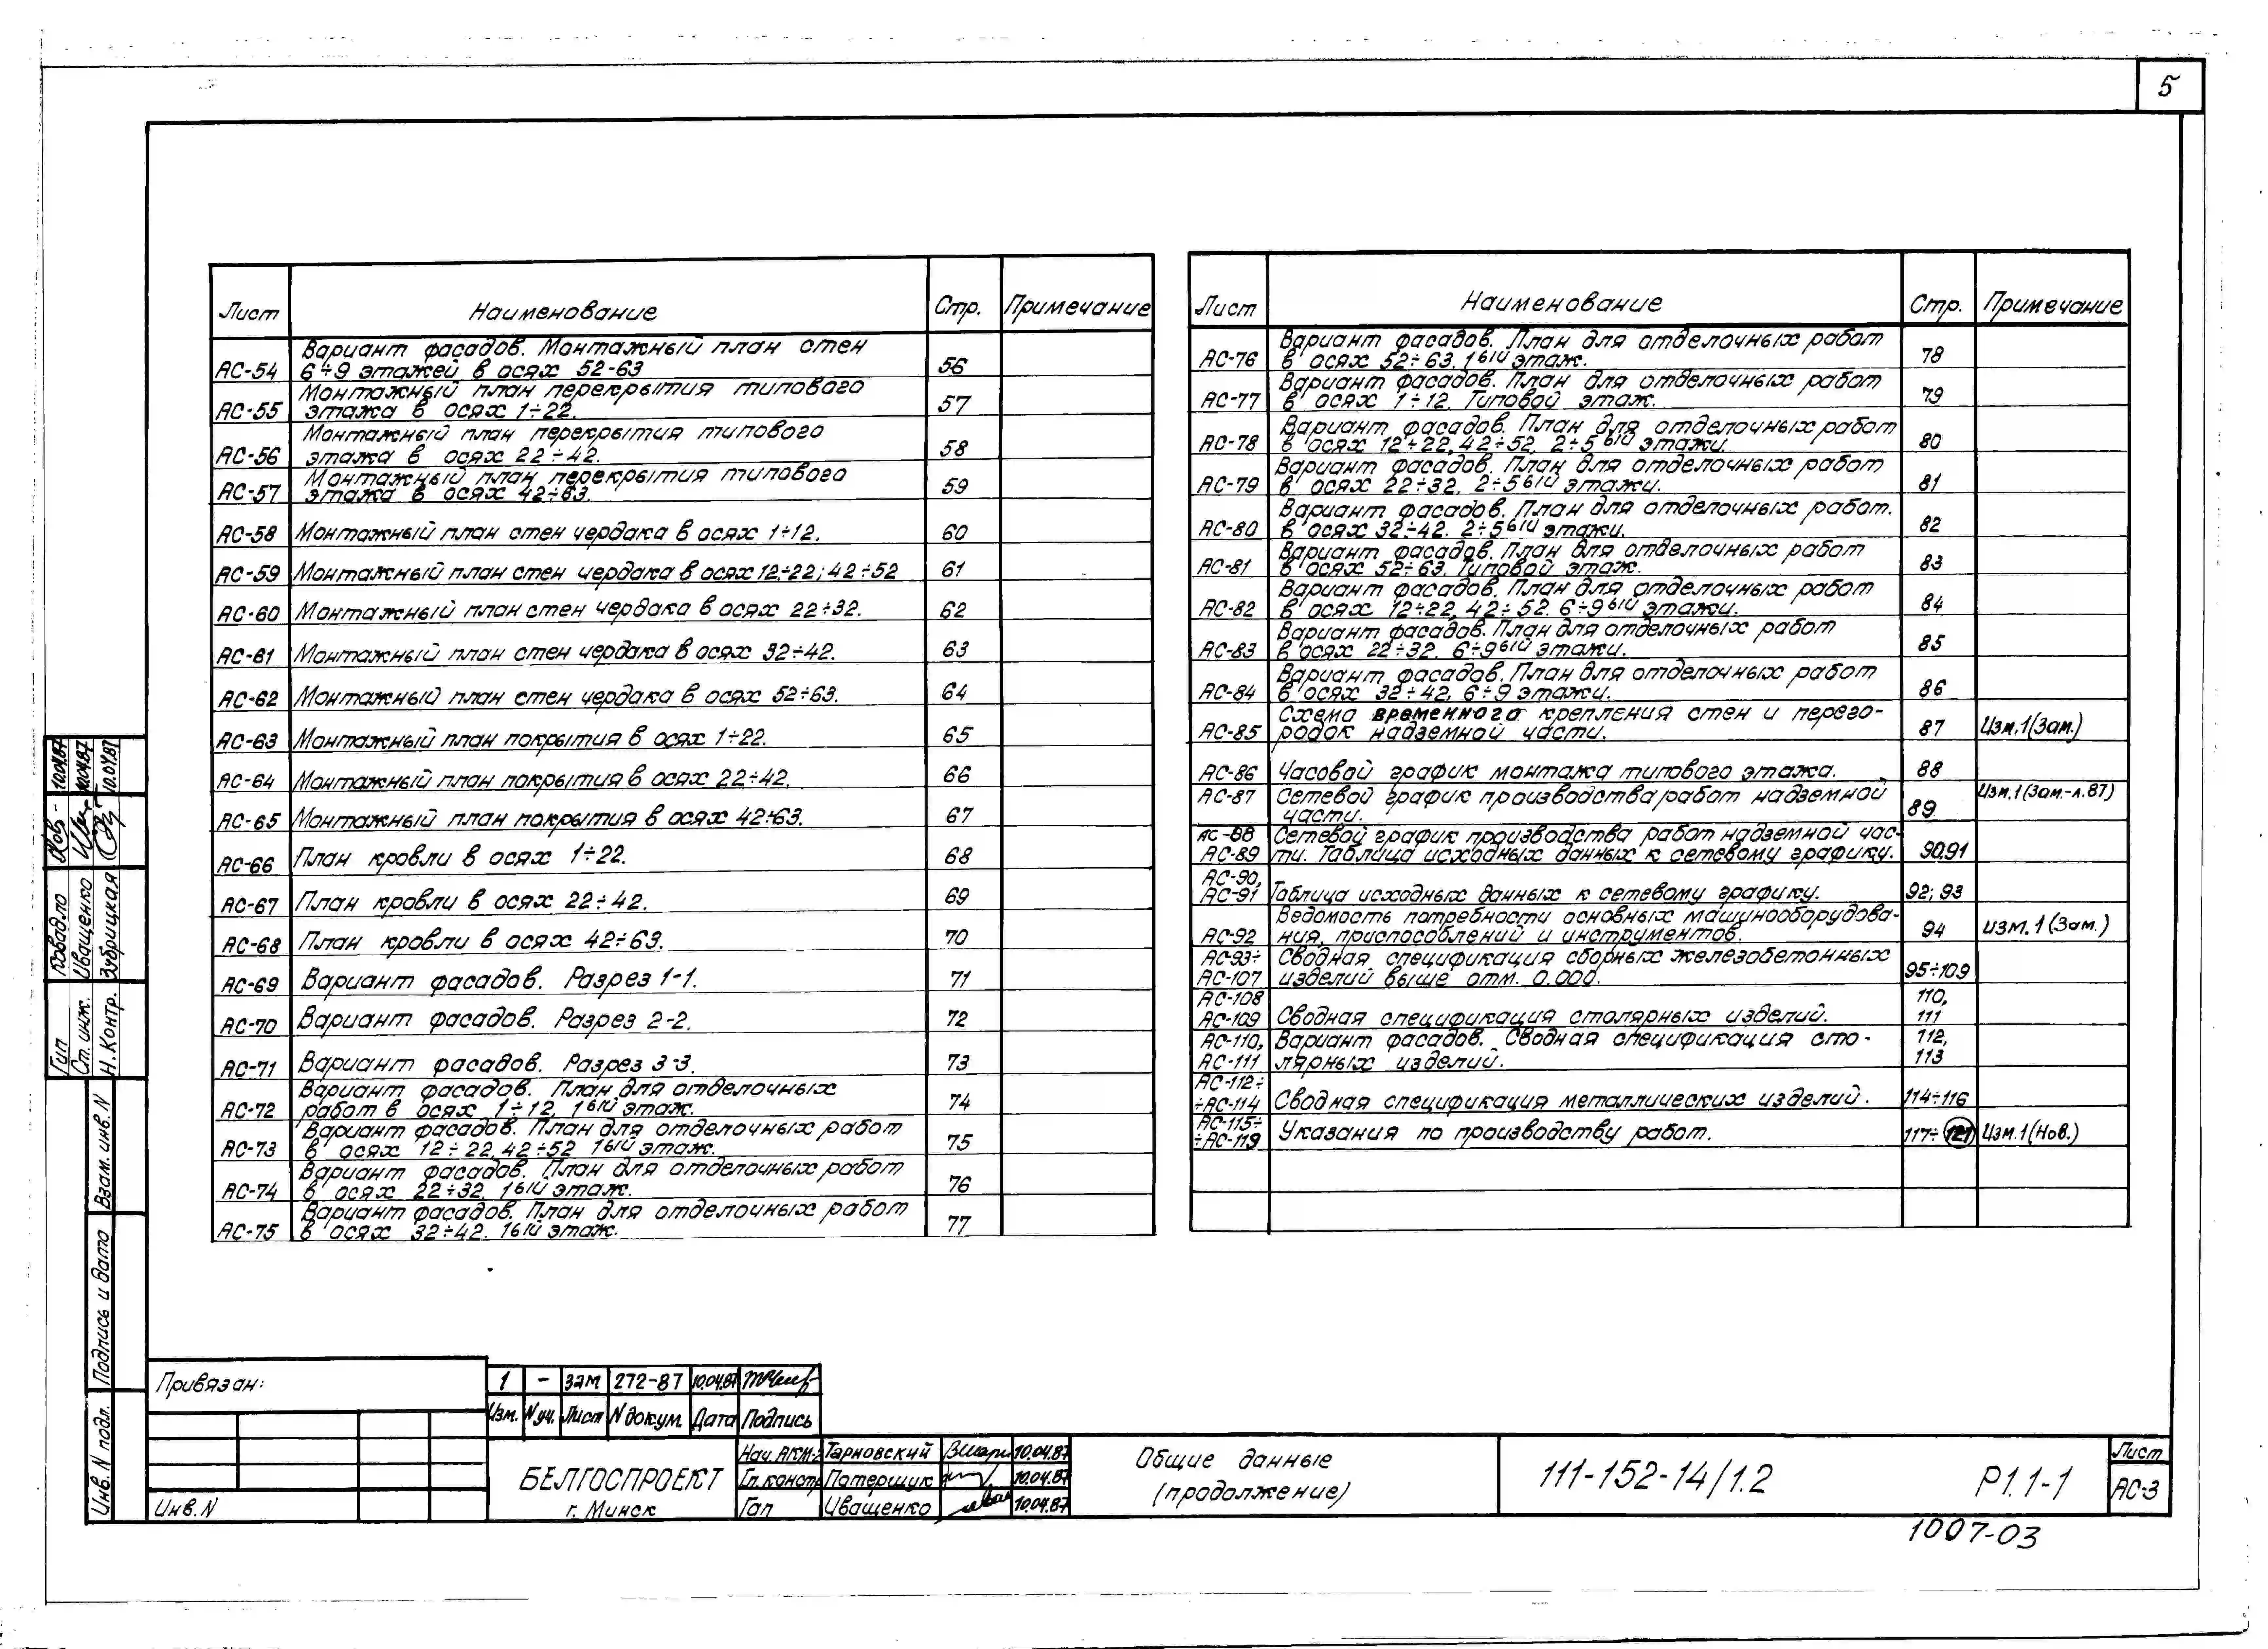 5
Лист Наименование Стр. Примечание
АС-54 Вариант фасадов. Монтажный план стен
6÷9 этажей в осях 52-63 56
АС-55 Монтажный план перекрытия типового
этажа в осях 1÷22. 57
АС-56 Монтажный план перекрытия типового
этажа в осях 22÷42. 58
АС-57 Монтажный план перекрытия типового
этажа в осях 42÷63. 59
АС-58 Монтажный план стен чердака в осях 1÷12. 60
АС-59 Монтажный план стен чердака в осях 12÷22; 42÷52 61
АС-60 Монтажный план стен чердака в осях 22÷32. 62
АС-61 Монтажный план стен чердака в осях 32÷42. 63
АС-62 Монтажный план стен чердака в осях 52÷63. 64
АС-63 Монтажный план покрытия в осях 1÷22. 65
АС-64 Монтажный план покрытия в осях 22÷42. 66
АС-65 Монтажный план покрытия в осях 42÷63. 67
АС-66 План кровли в осях 1÷22. 68
АС-67 План кровли в осях 22÷42. 69
АС-68 План кровли в осях 42÷63. 70
АС-69 Вариант фасадов. Разрез 1-1. 71
АС-70 Вариант фасадов. Разрез 2-2. 72
АС-71 Вариант фасадов. Разрез 3-3. 73
АС-72 Вариант фасадов. План для отделочных
работ в осях 1÷12. 1ый этаж. 74
АС-73 Вариант фасадов. План для отделочных работ
в осях 12÷22, 42÷52 1ый этаж. 75
АС-74 Вариант фасадов. План для отделочных работ
в осях 22÷32. 1ый этаж. 76
АС-75 Вариант фасадов. План для отделочных работ
в осях 32÷42. 1ый этаж. 77
Лист Наименование Стр. Примечание
АС-76 Вариант фасадов. План для отделочных работ
в осях 52÷63. 1ый этаж. 78
АС-77 Вариант фасадов. План для отделочных работ
в осях 1÷12. Типовой этаж. 79
АС-78 Вариант фасадов. План для отделочных работ
в осях 12÷22, 42÷52. 2÷5ый этажи. 80
АС-79 Вариант фасадов. План для отделочных работ
в осях 22÷32. 2÷5ый этажи. 81
АС-80 Вариант фасадов. План для отделочных работ.
в осях 32÷42. 2÷5ый этажи. 82
АС-81 Вариант фасадов. План для отделочных работ
в осях 52÷63. Типовой этаж. 83
АС-82 Вариант фасадов. План для отделочных работ
в осях 12÷22, 42÷52. 6÷9ый этажи. 84
АС-83 Вариант фасадов. План для отделочных работ
в осях 22÷32. 6÷9ый этажи. 85
АС-84 Вариант фасадов. План для отделочных работ
в осях 32÷42, 6÷9 этажи. 86
АС-85 Схема временного крепления стен и перего-
родок надземной части. 87 Изм.1(Зам.)
АС-86 Часовой график монтажа типового этажа. 88
АС-87 Сетевой график производства работ надземной
части. 89 Изм.1(Зам.-л.87)
АС-88 Сетевой график производства работ надземной час-
АС-89 ти. Таблица исходных данных к сетевому графику. 90,91
АС-90,
АС-91 Таблица исходных данных к сетевому графику. 92; 93
Ведомость потребности основных машинооборудова-
АС-92 ния, приспособлений и инструментов. 94 изм.1(Зам.)
АС-93÷ Сводная спецификация сборных железобетонных
АС-107 изделий выше отм. 0.000. 95÷109
АС-108 110,
АС-109 Сводная спецификация столярных изделий. 111
АС-110, Вариант фасадов. Сводная спецификация сто- 112,
АС-111 лярных изделий. 113
АС-112÷
÷АС-114 Сводная спецификация металлических изделий. 114÷116
АС-115÷
÷АС-119 Указания по производству работ. 117÷121 Изм.1(Нов.)
Гип Ковадло 10.04.87
Ст. инж. Иващенко 10.04.87
Н.Контр. Зубрицкая 10.04.87
Взам. инв. N
Подпись и дата
Инв. N подл.
Привязан:
Инв. N
1 - зам 272-87 10.04.87
Изм. N уч. Лист N докум. Дата Подпись
БЕЛГОСПРОЕКТ
г. Минск
Нач. АКМ-2 Тарновский 10.04.87
Гл. констр Потерщук 10.04.87
Гап Иващенко 10.04.87
Общие данные
(продолжение)
111-152-14/1.2 Р1.1-1
Лист
АС-3
1007-03